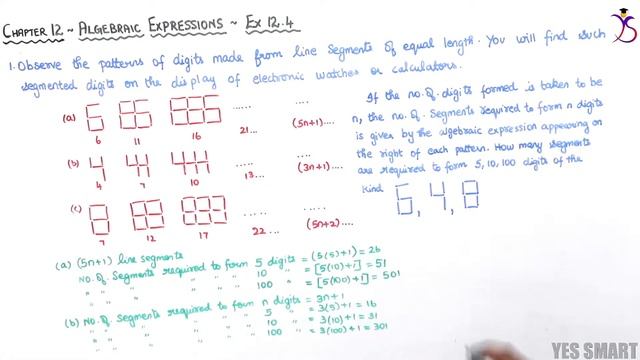 CHAPTER 12 ~ ALGEBRAIC EXPRESSIONS ~ Ex 12.4
1. Observe the patterns of digits made from line segments of equal length. You will find such
segmented digits on the display of electronic watches or calculators.
(a)
6 11 16 21... (5n+1)....
(b)
4 7 10 13... (3n+1)....
(c)
7 12 17 22... (5n+2)....
If the no. of digits formed is taken to be
n, the no. of segments required to form n digits
is given by the algebraic expression appearing on
the right of each pattern. How many segments
are required to form 5, 10, 100 digits of the
kind 6, 4, 8
(a) (5n+1) line segments
No. of segments required to form 5 digits = (5(5)+1) = 26
" " " " " 10 " = [5(10)+1] = 51
" " " " " 100 " = [5(100)+1] = 501
(b) No. of segments required to form n digits = 3n+1
" " " " " 5 " = 3(5)+1 = 16
" " " " " 10 " = 3(10)+1 = 31
" " " " " 100 " = 3(100)+1 = 301
YES SMART